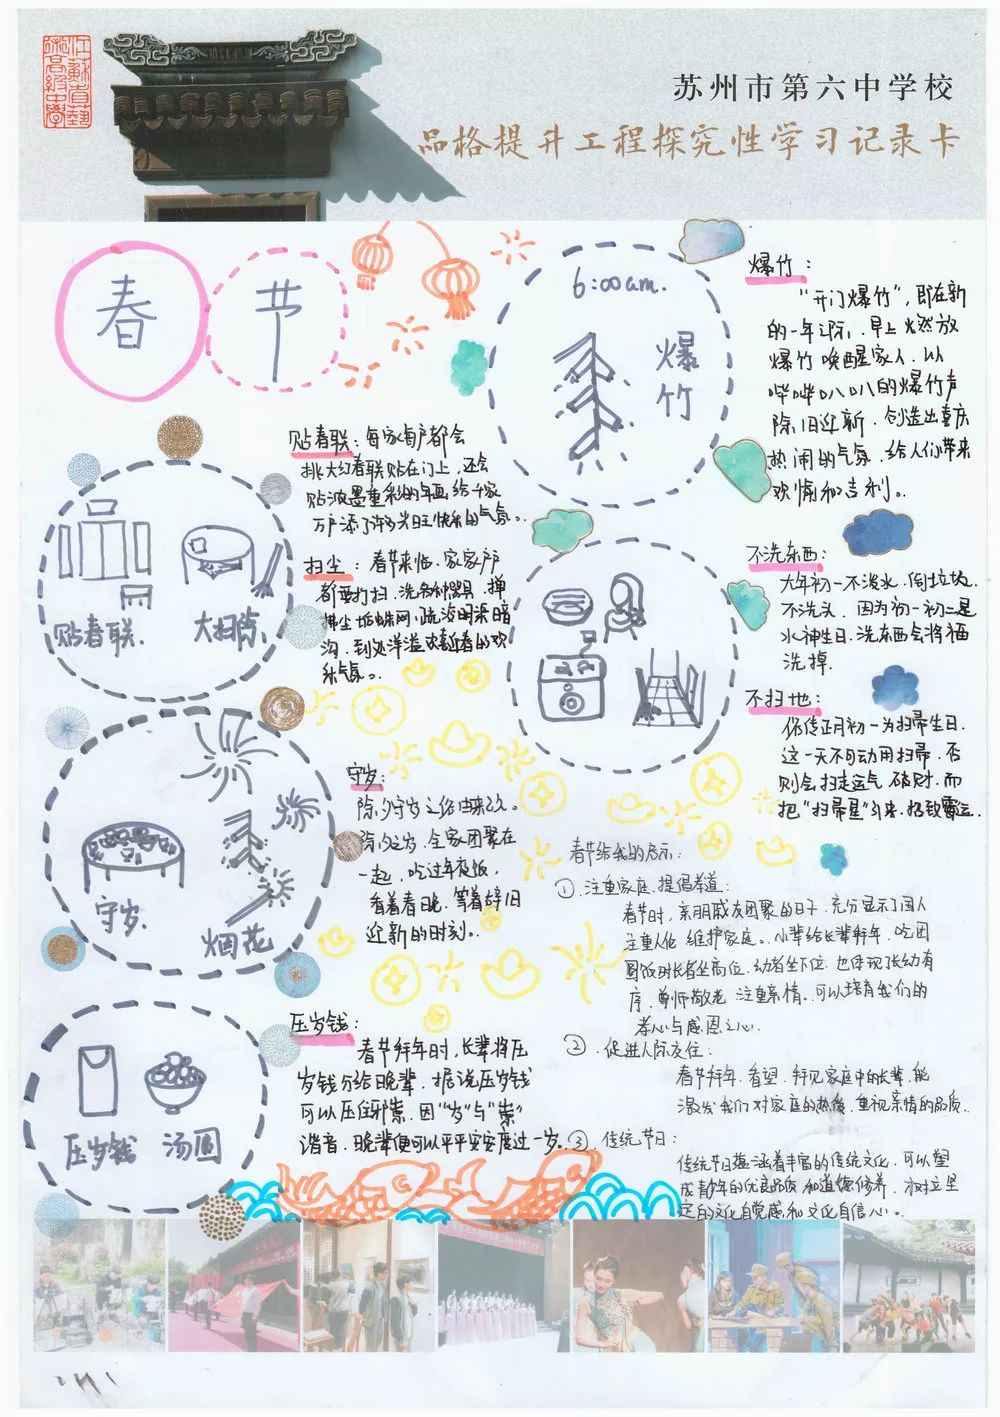 苏州市第六中学校
品格提升工程探究性学习记录卡
春节
6:00am.
爆竹
爆竹：
“开门爆竹”，即在新
的一年之际，早上燃放
爆竹唤醒家人，以
哔哔叭叭的爆竹声
除旧迎新，创造出喜庆
热闹的气氛，给人们带来
欢愉和吉利。
贴春联：每家每户都会
挑大红春联贴在门上，还会
贴浓墨重彩的年画，给千家
万户添了许多兴旺快乐的气氛。
扫尘：春节来临，家家户户
都要打扫，洗各种器具，掸
拂尘垢蛛网，疏浚明渠暗
沟，到处洋溢欢喜新春的欢
乐气氛。
贴春联.
大扫除.
不洗东西：
大年初一不泼水，倒垃圾，
不洗头，因为初一初二是
水神生日，洗东西会将福
洗掉.
不扫地：
俗传正月初一为扫帚生日.
这一天不可动用扫帚，否
则会扫走运气，破财，而
把“扫帚星”引来，招致霉运.
守岁：
除夕守岁之俗由来已久。
除夕之岁，全家团聚在
一起，吃过年夜饭，
看着春晚，等着辞旧
迎新的时刻。
守岁.
烟花
春节给我的启示：
① 注重家庭，提倡孝道：
春节时，亲朋戚友团聚的日子，充分显示了国人
注重人伦，维护家庭。小辈给长辈拜年，吃团
圆饭时长者坐高位，幼者坐下位，也体现长幼有
序，尊师敬老，注重亲情。可以培育我们的
孝心与感恩之心.
② 促进人际交往：
春节拜年，看望，拜见家庭中的长辈，能
激发我们对家庭的热爱，重视亲情的品质.
③ 传统节日：
传统节日蕴涵着丰富的传统文化，可以塑
成青年的优良品质和道德修养，树立坚
定的文化自觉感和文化自信心。
压岁钱：
春节拜年时，长辈将压
岁钱分给晚辈，据说压岁钱
可以压住邪祟，因“岁”与“祟”
谐音，晚辈便可以平平安安度过一岁。
压岁钱
汤圆